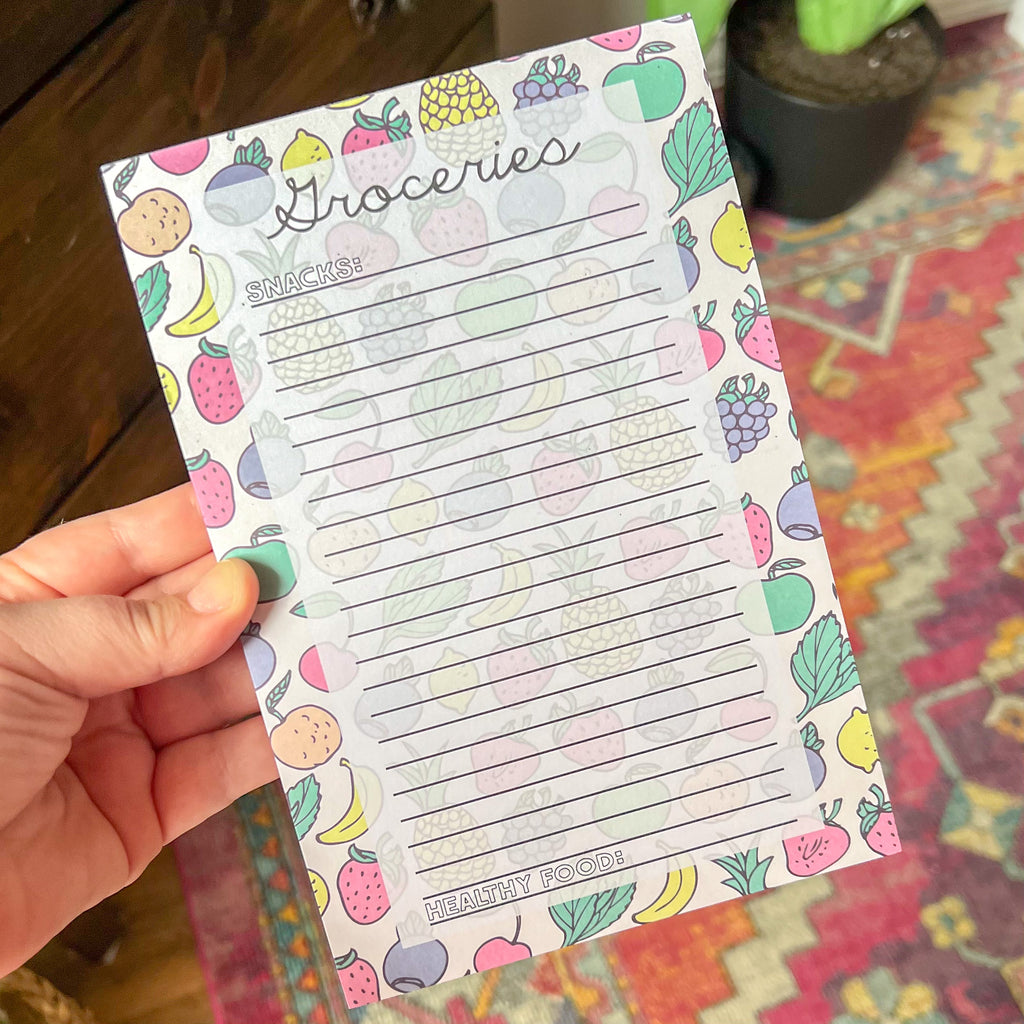 Groceries
SNACKS:
HEALTHY FOOD: